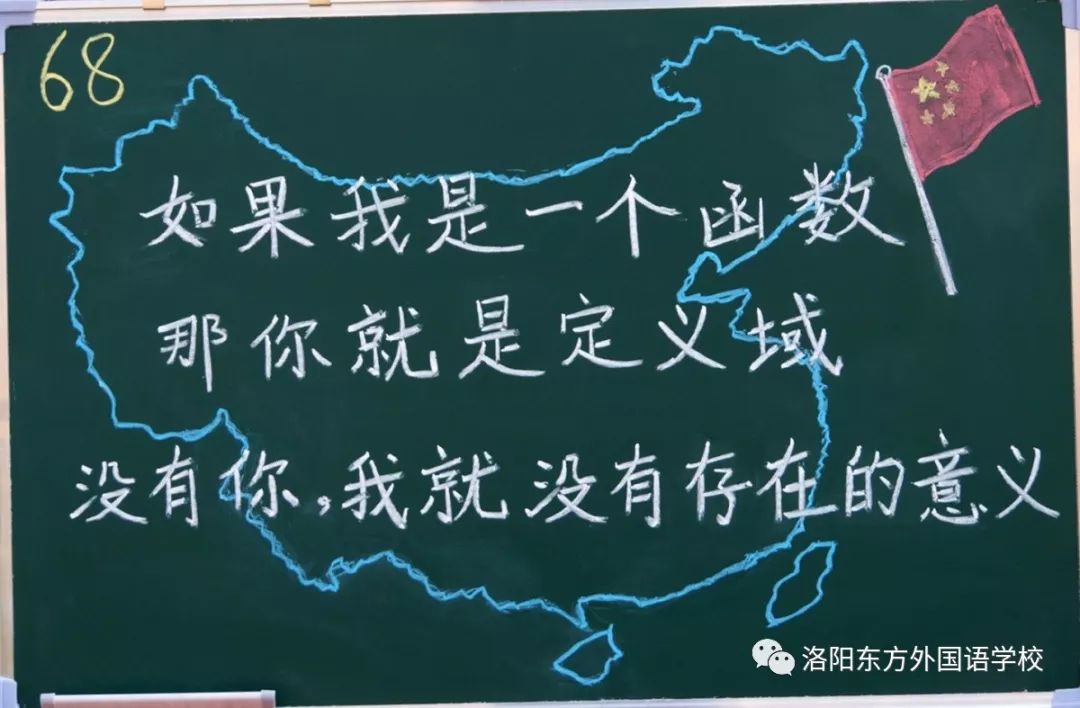 68
如果我是一个函数
那你就是定义域
没有你,我就没有存在的意义
洛阳东方外国语学校